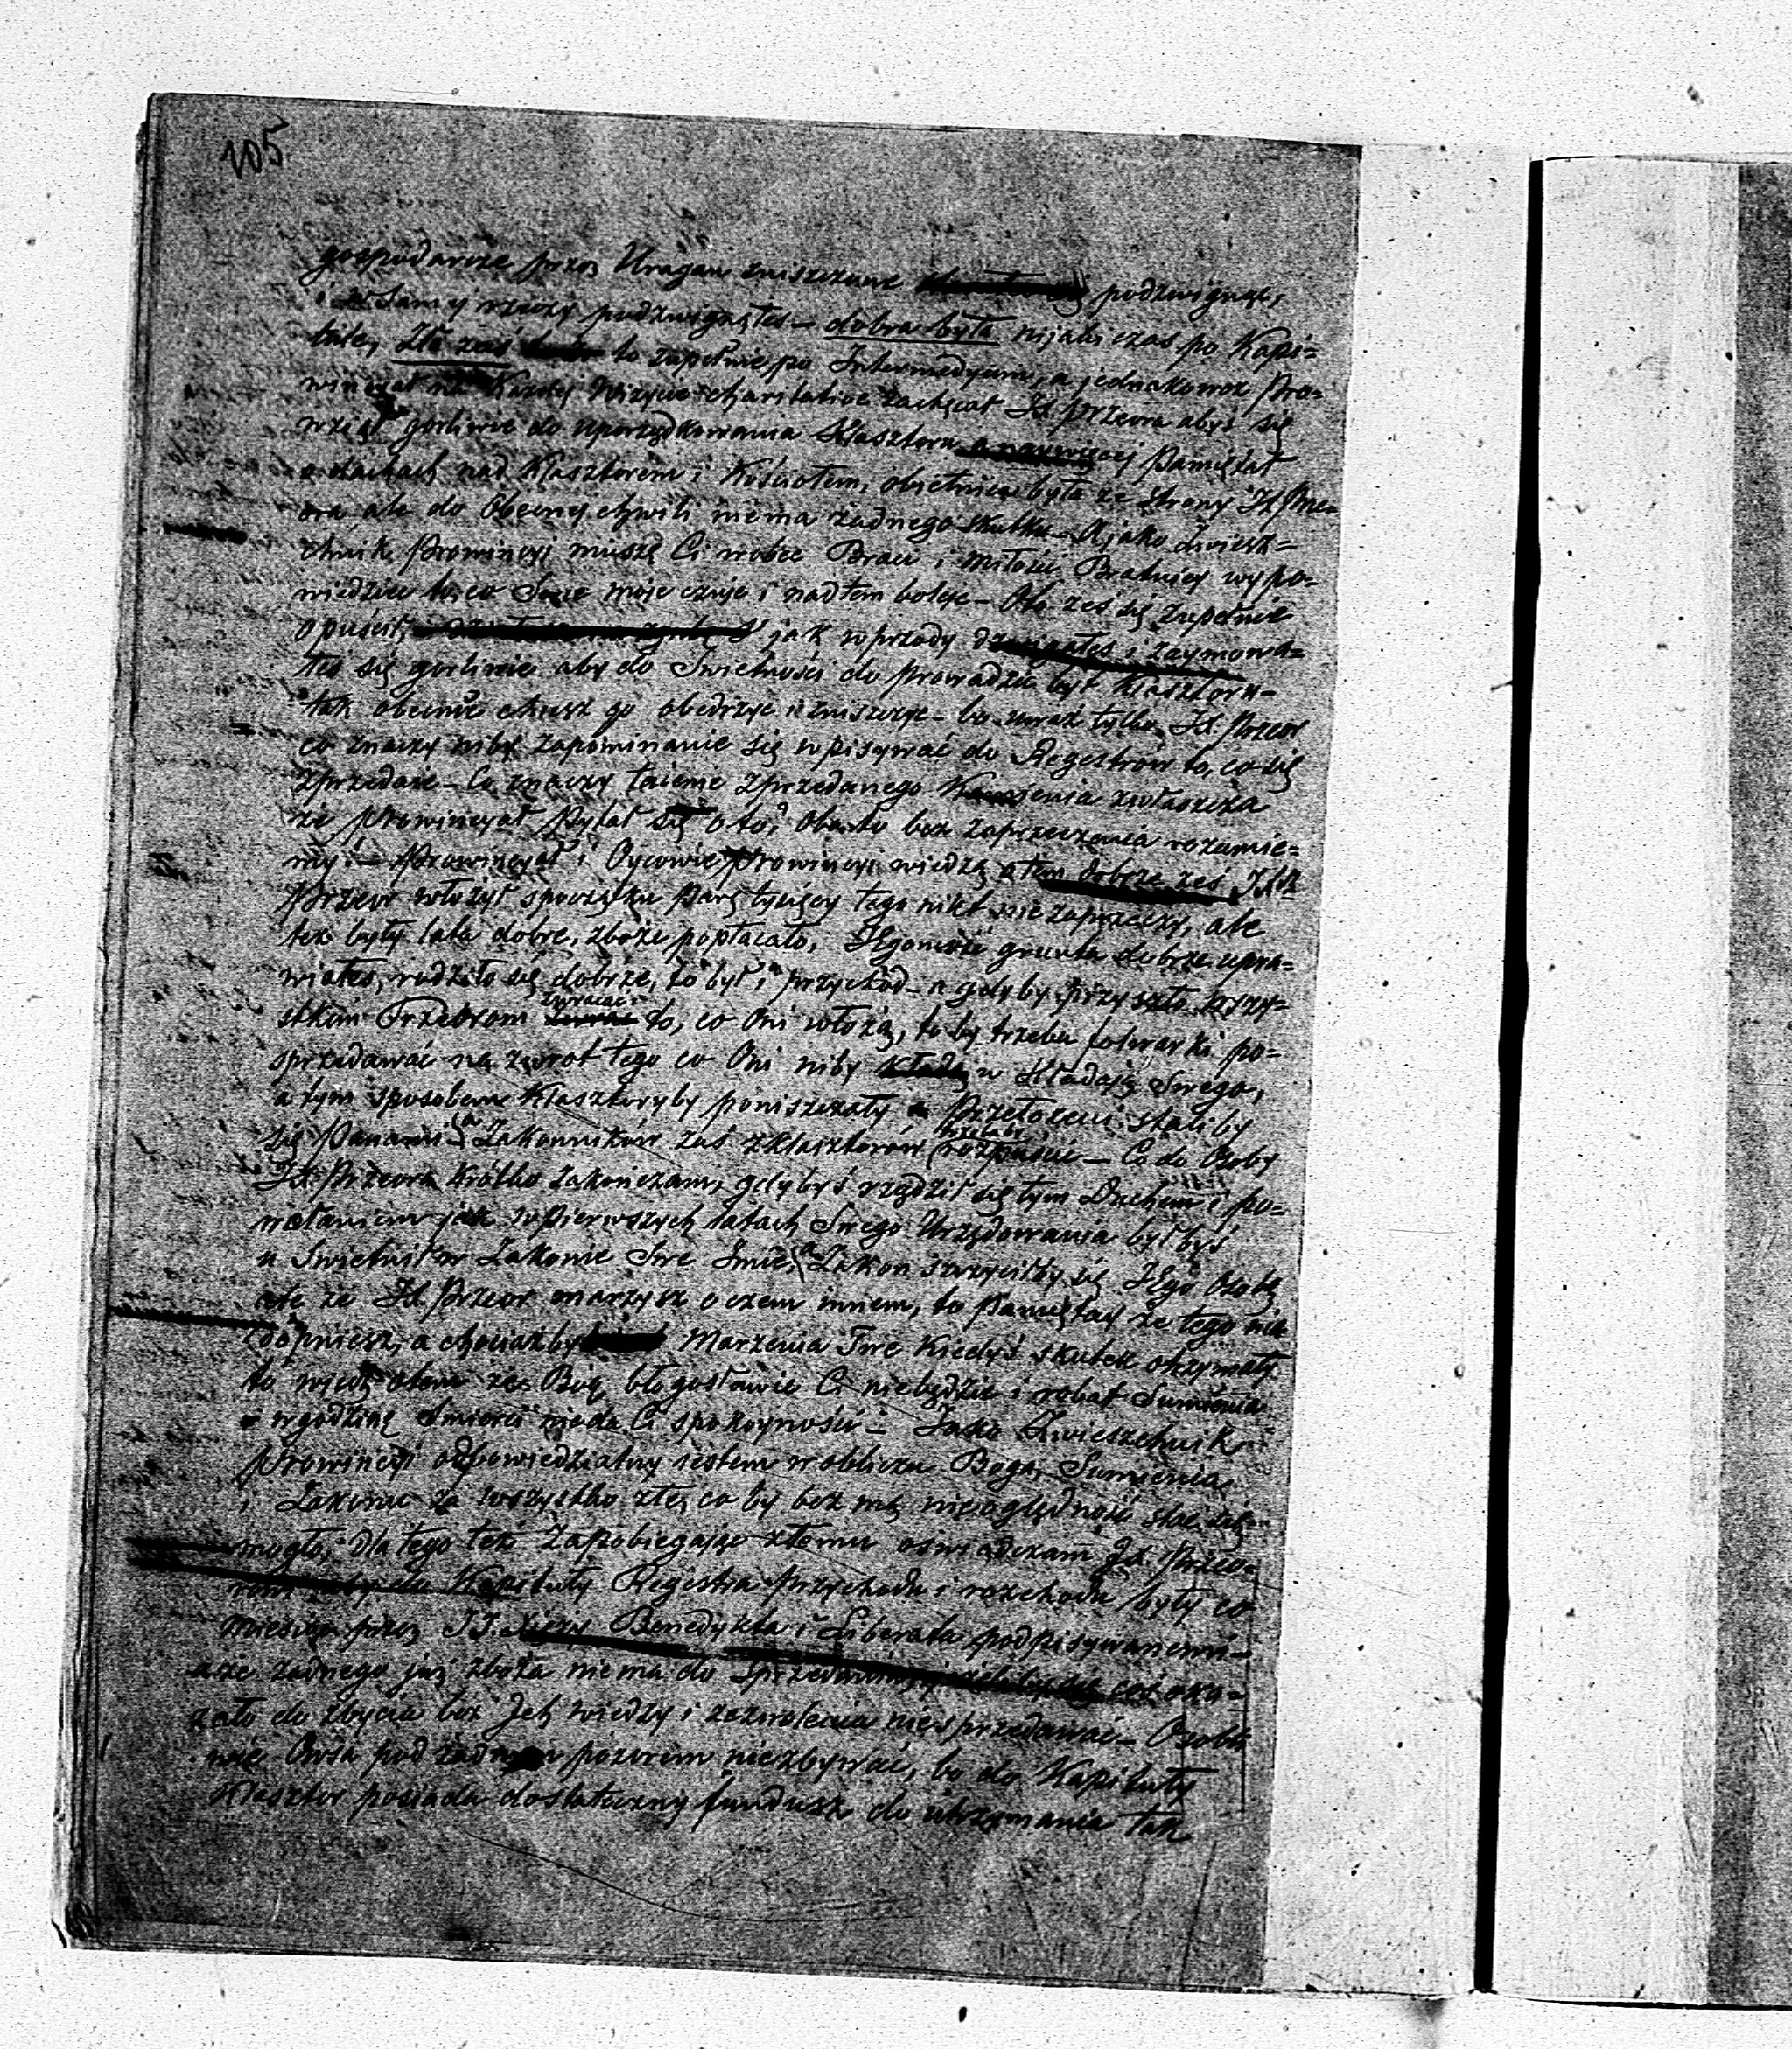 105
gospodarcze przez Uragan zniszczone podzwignąć,
i w samej rzeczy podzwignąłeś – dobra była nijaki czas po Kapi=
tule, Źle zaś to zupełnie po Intermedyum, a jednakowoż Pro=
wincyał na Każdej Wizycie charitative zachęcał Jx. Przeora abyś się
wziął gorliwie do uporządkowania Klasztoru a naywięcej Pamiętał
o dachach nad Klasztorem i Kościołem, obietnica była ze strony Jx. Prze=
ora, ale do Obecnej chwili niema żadnego skutku – A jako Zwierz=
chnik Prowincyi muszę Ci wobec Braci i miłości Bratniej wypo=
wiedzieć to, co Serce moje czuje i nad tem boleje – Oto żeś się zupełnie
opuścił, jak wprzody dzwigałeś i zaymowa=
łeś się gorliwie aby do Swietności doprowadzić byt Klasztoru –
tak obecnie chcesz go obedrzyć i zniszczyć – bo uważ tylko Jx. Przeor
co znaczy niby zapominanie się wpisywać do Regestrów to, co się
zprzedaje – Co znaczy taienie zprzedanego zwłaszcza
że Prowincyał Pytał się o to? Oba to bez zaprzeczenia rozumie=
my! – Prowincyał i Oycowie Prowincyi wiedzą o tem dobrze żeś Jx.
Przeor włożył spoczątku Parę tysięcy tego nikt nie zaprzeczy, ale
też były lata dobre, zboże popłacało, Jegomość grunta dobrze upra=
wiałeś, rodziło się dobrze, to był i przychód – a gdyby przyszło wszy=
stkim Przeorom zwracać to, co Oni włożą, to by trzeba folwarki po=
sprzedawać na zwrot tego co Oni niby wkładają Swego,
a tym sposobem Klasztoryby poniszczały Przełożeni staliby
się Panami, a Zakonników zaś z Klasztorów trzebaby rozpuścić – Co do Osoby
Jx. Przeora Krótko zakończam, gdybyś rządził się tym Duchem i po=
wołaniem jak w Pierwszych latach Swego Urzędowania byłbyś
uświetnił w Zakonie Swe Imie, a Zakon szczyciłby się Jego Osobą
ale że Jx. Przeor marzysz o czem innem, to Pamiętay że tego nie
dopniesz, a chociażby Marzenia Twe Kiedyś skutek otrzymały
to wiedz o tem że Bóg błogosławić Ci niebędzie i robak Sumienia
w godzinę Smierci nieda Ci spokoyności – Jako Zwierzchnik
Prowincyi odpowiedzialny iestem w obliczu Boga, Sumienia
i Zakonu za wszystko złe, co by bez mą nieoględność stać się
mogło, dla tego też Zapobiegając złemu oświadczam Jx. Przeo=
rowi aby do Kapituły Regestra przychodu i rozchodu były co
miesiąc przez JJ. Xięży Benedykta i Liberata podpisywanemi –
a że żadnego już zboża niema do Sprzedania, coś oka=
zało do zbycia bez Jch wiedzy i zezwolenia niesprzedawać – Osobli
wie Owsa pod żadnym pozorem niezbywać, bo do Kapituły
Klasztor posiada dostateczny fundusz do utrzymania tak